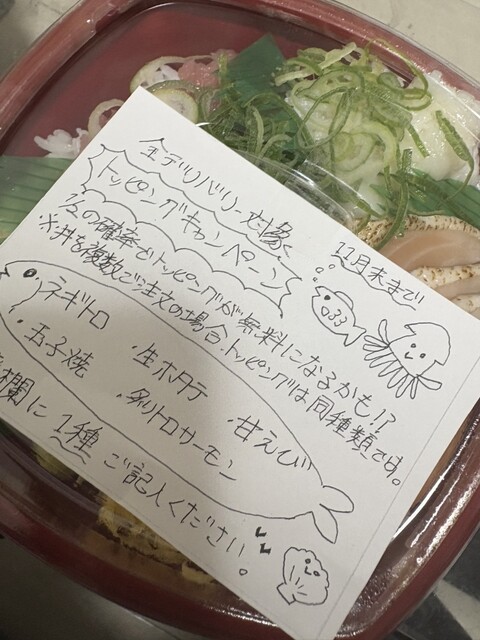 全デリバリー対象
11月末まで
トッピングキャンペーン
1/2の確率でトッピングが無料になるかも!?
※丼を複数ご注文の場合、トッピングは同種類です。
・ネギトロ ・生ホタテ ・甘えび
・玉子焼 ・炙りトロサーモン
欄に1種ご記入ください。